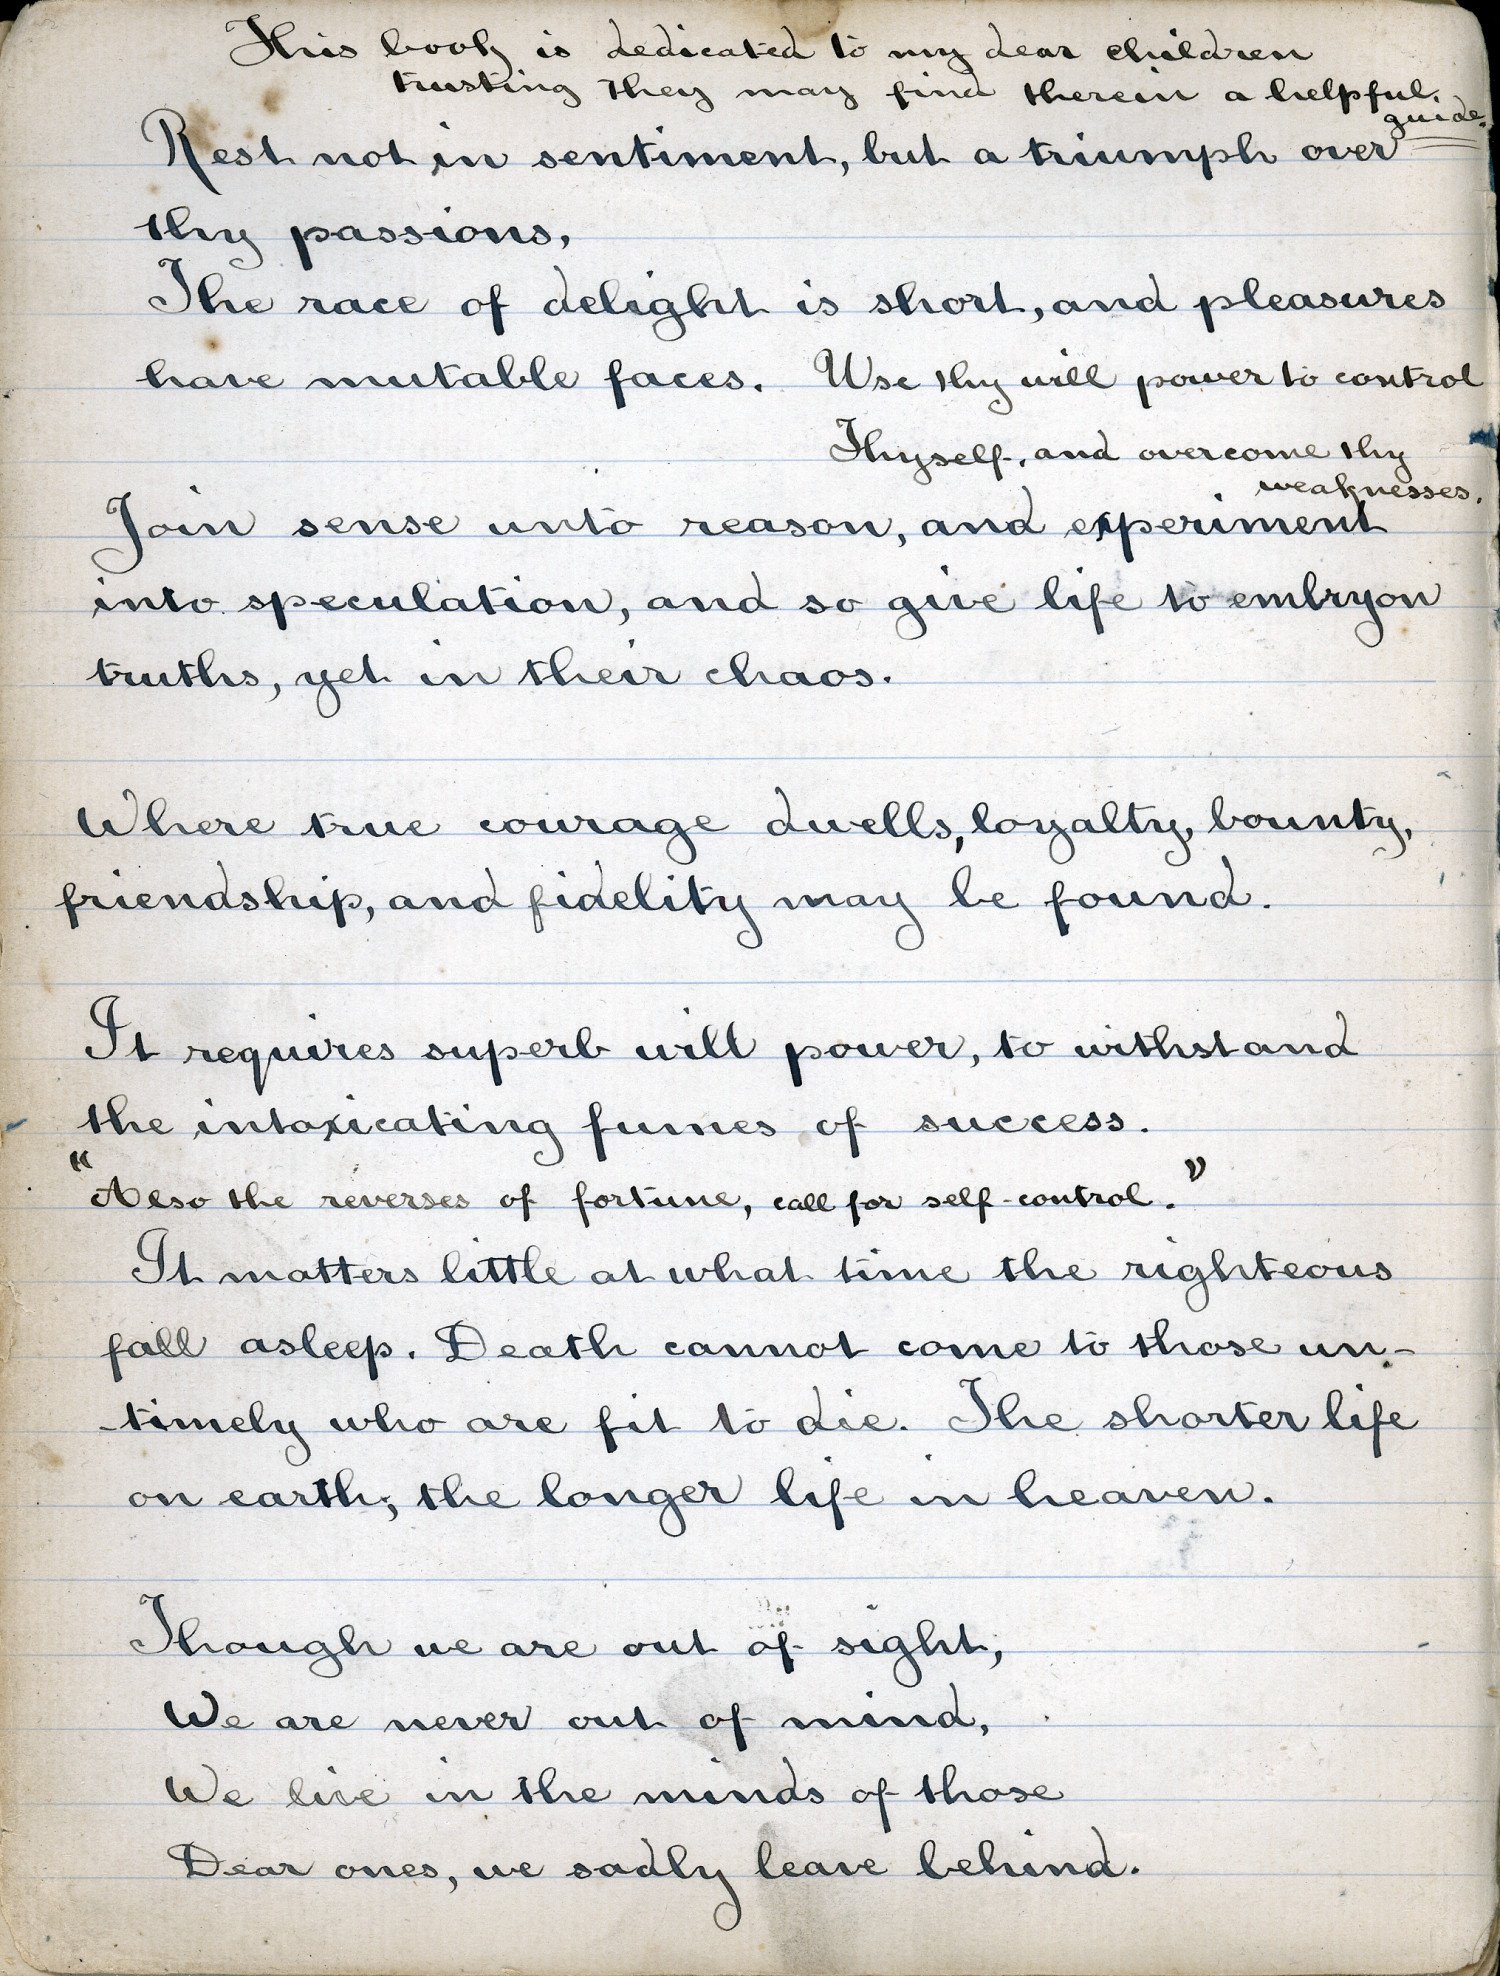 This book is dedicated to my dear children
trusting they may find therein a helpful
guide.
Rest not in sentiment, but a triumph over
thy passions,
The race of delight is short, and pleasures
have mutable faces. Use thy will power to control
Thyself, and overcome thy
weaknesses.
Join sense unto reason, and experiment
into speculation, and so give life to embryon
truths, yet in their chaos.
Where true courage dwells, loyalty, bounty,
friendship, and fidelity may be found.
It requires superb will power, to withstand
the intoxicating fumes of success.
"Also the reverses of fortune, call for self-control."
It matters little at what time the righteous
fall asleep. Death cannot come to those un-
-timely who are fit to die. The shorter life
on earth; the longer life in heaven.
Though we are out of sight,
We are never out of mind,
We live in the minds of those
Dear ones, we sadly leave behind.